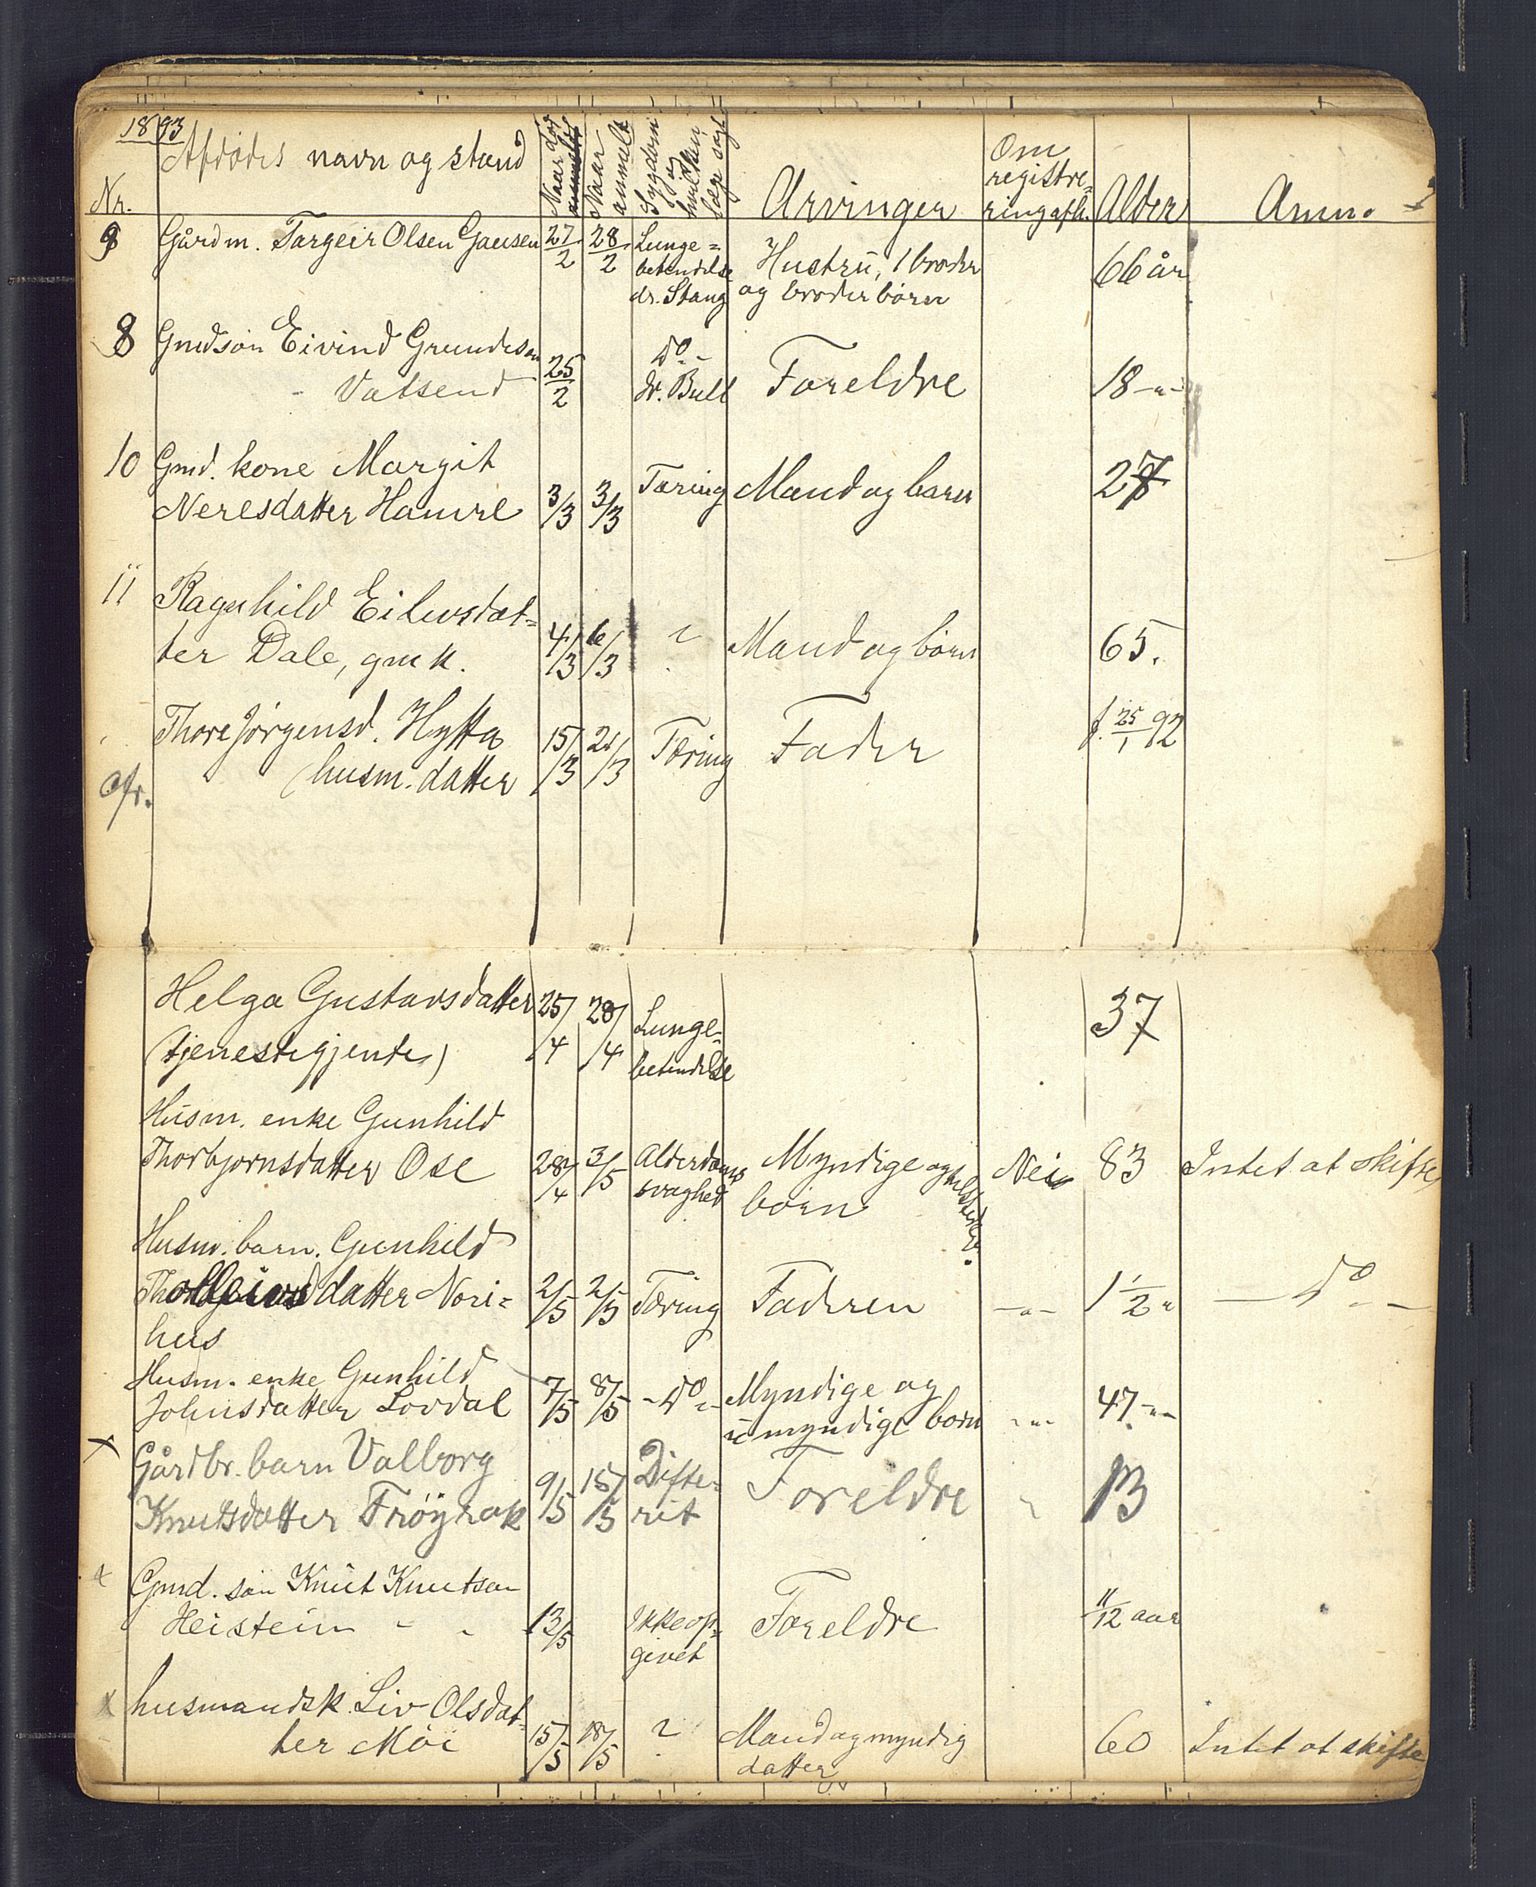 1893
Nr. Afdødes navn og stand Naar død Naar anmeldt Sygdom og hvilken læge søgt Arvinger Om registrering afh. Alder Anm.
9 Gårdm. Targeir Olsen Gausen 27/2 28/2 Lunge=
betendelse Hustru, 1 broder 66 år
dr. Stang og broderbørn
8 Gmdsøn Eivind Grundeson do -
Vatsend 25/2 dr. Bull Foreldre 18 -"-
10 Gmd. kone Margit
Neresdatter Hamre 3/3 3/3 Tæring Mand og barn 27
11 Ragnhild Eilevsdat=
ter Dale, gmk. 4/3 6/3 ? Mand og børn 65.
Thore Jørgensd. Hytta 15/3 21/3 Tæring Fader f. 25/1 92
afr. (husm. datter
Helga Gustavsdatter 25/4 28/4 Lunge- 37
(tjenestegjente) betendelse
Husm. enke Gunhild
Thorbjornsdatter Ose 28/4 3/5 Alderdoms Myndige og Nei 83 Intet at skifte
svaghed børn
Husm. barn. Gunhild
Tholleivsdatter Nori= 2/5 2/5 Tæring Faderen -"- 1 1/2 " - do -
hus
Husm. enke Gunhild
Johnsdatter Lovdal 7/5 8/5 - do - Myndige og -"- 47 -"-
umyndige born
x Gårdbr. barn Valborg
Knutsdatter Frøyrak 9/5 15/5 Difte-
rit Foreldre " 13
x Gmd. søn Knut Knutson
Heistein - - 13/5 Ikke op-
givet Foreldre 11/12 aar
x husmandsk. Liv Olsdat-
ter Møi 15/5 18/5 ? Mand og myndig 60 Intet at skifte
datter